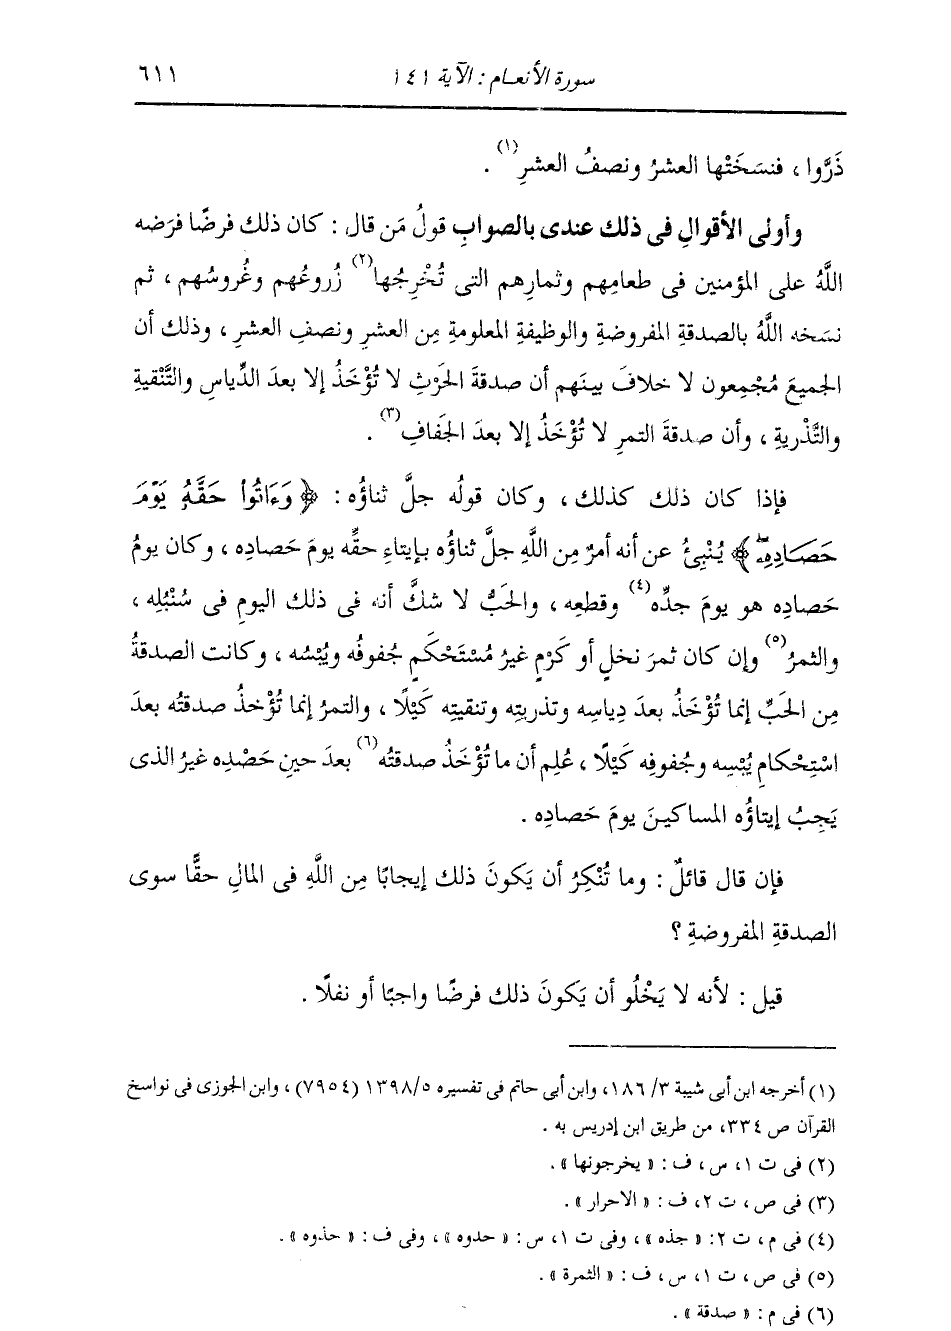 سورة الأنعام : الآية ١٤١
٦١١
ذَرَّوا ، فنسَخَتْها العشرُ ونصفُ العشرِ(١) .
وأولى الأقوالِ فى ذلك عندى بالصوابِ قولُ مَن قال : كان ذلك فرضًا فرَضه
اللَّهُ على المؤمنين فى طعامِهم وثمارِهم التى تُخْرِجُها(٢) زُروعُهم وغُروسُهم ، ثم
نسَخه اللَّهُ بالصدقةِ المفروضةِ والوظيفةِ المعلومةِ مِن العشرِ ونصفِ العشرِ ، وذلك أن
الجميعَ مُجْمِعون لا خلافَ بينَهم أن صدقةَ الحَرْثِ لا تُؤْخَذُ إلا بعدَ الدِّياسِ والتَّنْقيةِ
والتَّذْريةِ ، وأن صدقةَ التمرِ لا تُؤْخَذُ إلا بعدَ الجَفافِ(٣) .
فإذا كان ذلك كذلك ، وكان قولُه جلَّ ثناؤُه : ﴿ وَءَاتُوا۟ حَقَّهُۥ يَوْمَ
حَصَادِهِۦۖ ﴾ يُنْبِئُ عن أنه أمرٌ مِن اللَّهِ جلَّ ثناؤُه بإيتاءِ حقِّه يومَ حَصادِه ، وكان يومُ
حَصادِه هو يومَ جدِّه(٤) وقطعِه ، والحَبُّ لا شكَّ أنه فى ذلك اليومِ فى سُنْبُلِه ،
والثمرُ(٥) وإن كان ثمرَ نخلٍ أو كَرْمٍ غيرُ مُسْتَحْكَمٍ جُفوفُه ويُبْسُه ، وكانت الصدقةُ
مِن الحَبِّ إنما تُؤْخَذُ بعدَ دِياسِه وتذريتِه وتنقيتِه كَيْلًا ، والتمرُ إنما تُؤْخذُ صدقتُه بعدَ
اسْتِحْكامِ يُبْسِه وجُفوفِه كَيْلًا ، عُلِم أن ما تُؤْخَذُ صدقتُه(٦) بعدَ حينِ حَصْدِه غيرُ الذى
يَجِبُ إيتاؤُه المساكينَ يومَ حَصادِه .
فإن قال قائلٌ : وما تُنْكِرُ أن يَكونَ ذلك إيجابًا مِن اللَّهِ فى المالِ حقًّا سوى
الصدقةِ المفروضةِ ؟
قيل : لأنه لا يَخْلُو أن يَكونَ ذلك فرضًا واجبًا أو نفلًا .
(١) أخرجه ابن أبى شيبة ٣/ ١٨٦، وابن أبى حاتم فى تفسيره ١٣٩٨/٥ (٧٩٥٤) ، وابن الجوزى فى نواسخ
القرآن ص ٣٣٤، من طريق ابن إدريس به .
(٢) فى ت ١، س ، ف : « يخرجونها » .
(٣) فى ص ، ت ٢، ف : « الاحرار » .
(٤) فى م ، ت ٢: « جذه » ، وفى ت ١، س : « حدوه » ، وفى ف : « حذوه » .
(٥) فى ص ، ت ١، س ، ف : « الثمرة » .
(٦) فى م : « صدقة » .